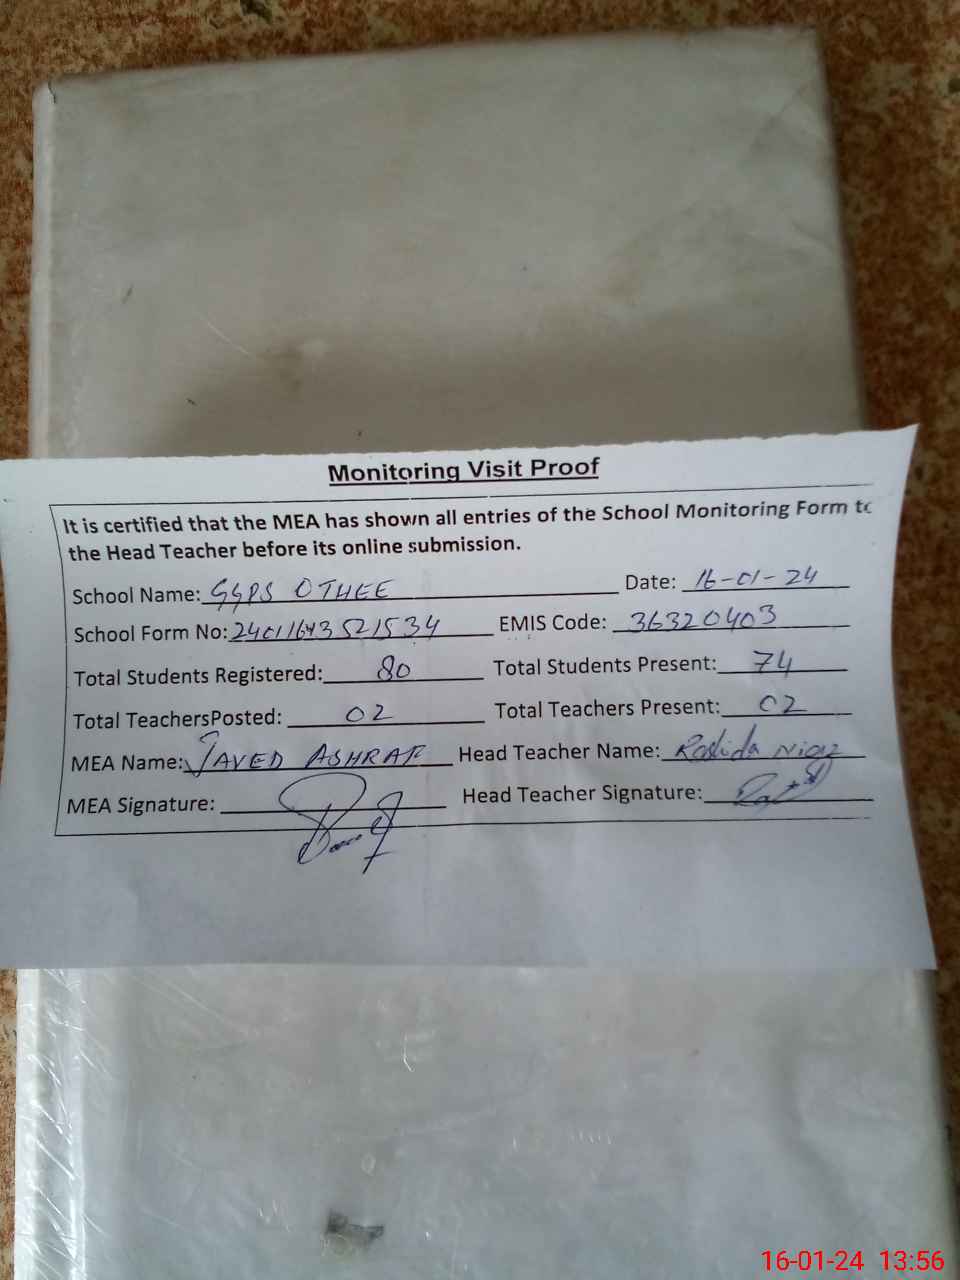 Monitoring Visit Proof
It is certified that the MEA has shown all entries of the School Monitoring Form to
the Head Teacher before its online submission.
School Name: GGPS OTHEE Date: 16-01-24
School Form No: 24011643521534 EMIS Code: 36320403
Total Students Registered: 80 Total Students Present: 74
Total TeachersPosted: 02 Total Teachers Present: 02
MEA Name: JAVED ASHRAF Head Teacher Name: Rashida Niaz
MEA Signature: Head Teacher Signature:
16-01-24 13:56